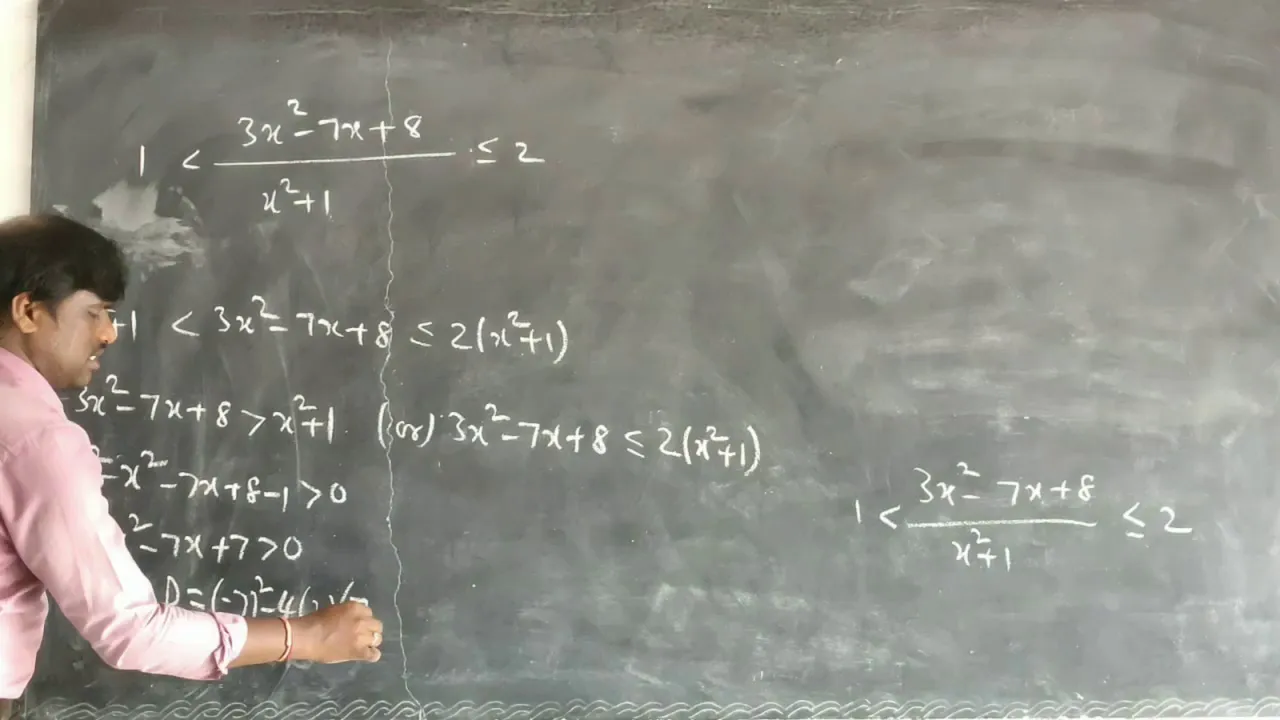 1 < 3x² - 7x + 8 / x² + 1 ≤ 2
+1 < 3x² - 7x + 8 ≤ 2(x² + 1)
3x² - 7x + 8 > x² + 1 (or) 3x² - 7x + 8 ≤ 2(x² + 1)
- x² - 7x + 8 - 1 > 0
² - 7x + 7 > 0
D = (-7)² - 4(
1 < 3x² - 7x + 8 / x² + 1 ≤ 2